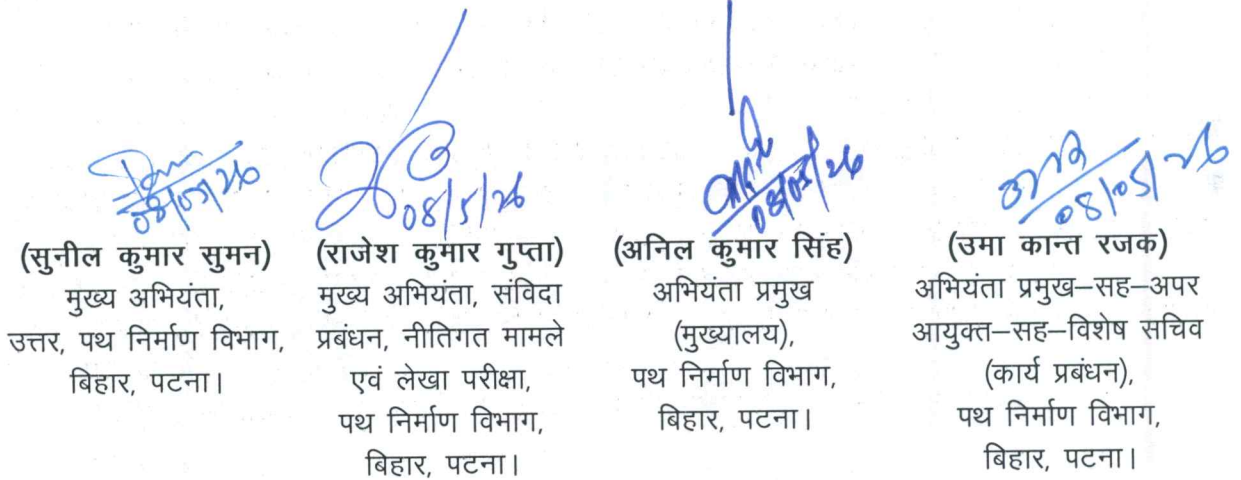 08/05/26
(सुनील कुमार सुमन)
मुख्य अभियंता,
उत्तर, पथ निर्माण विभाग,
बिहार, पटना।
08/5/26
(राजेश कुमार गुप्ता)
मुख्य अभियंता, संविदा
प्रबंधन, नीतिगत मामले
एवं लेखा परीक्षा,
पथ निर्माण विभाग,
बिहार, पटना।
08/05/26
(अनिल कुमार सिंह)
अभियंता प्रमुख
(मुख्यालय),
पथ निर्माण विभाग,
बिहार, पटना।
08/05/26
(उमा कान्त रजक)
अभियंता प्रमुख–सह–अपर
आयुक्त–सह–विशेष सचिव
(कार्य प्रबंधन),
पथ निर्माण विभाग,
बिहार, पटना।